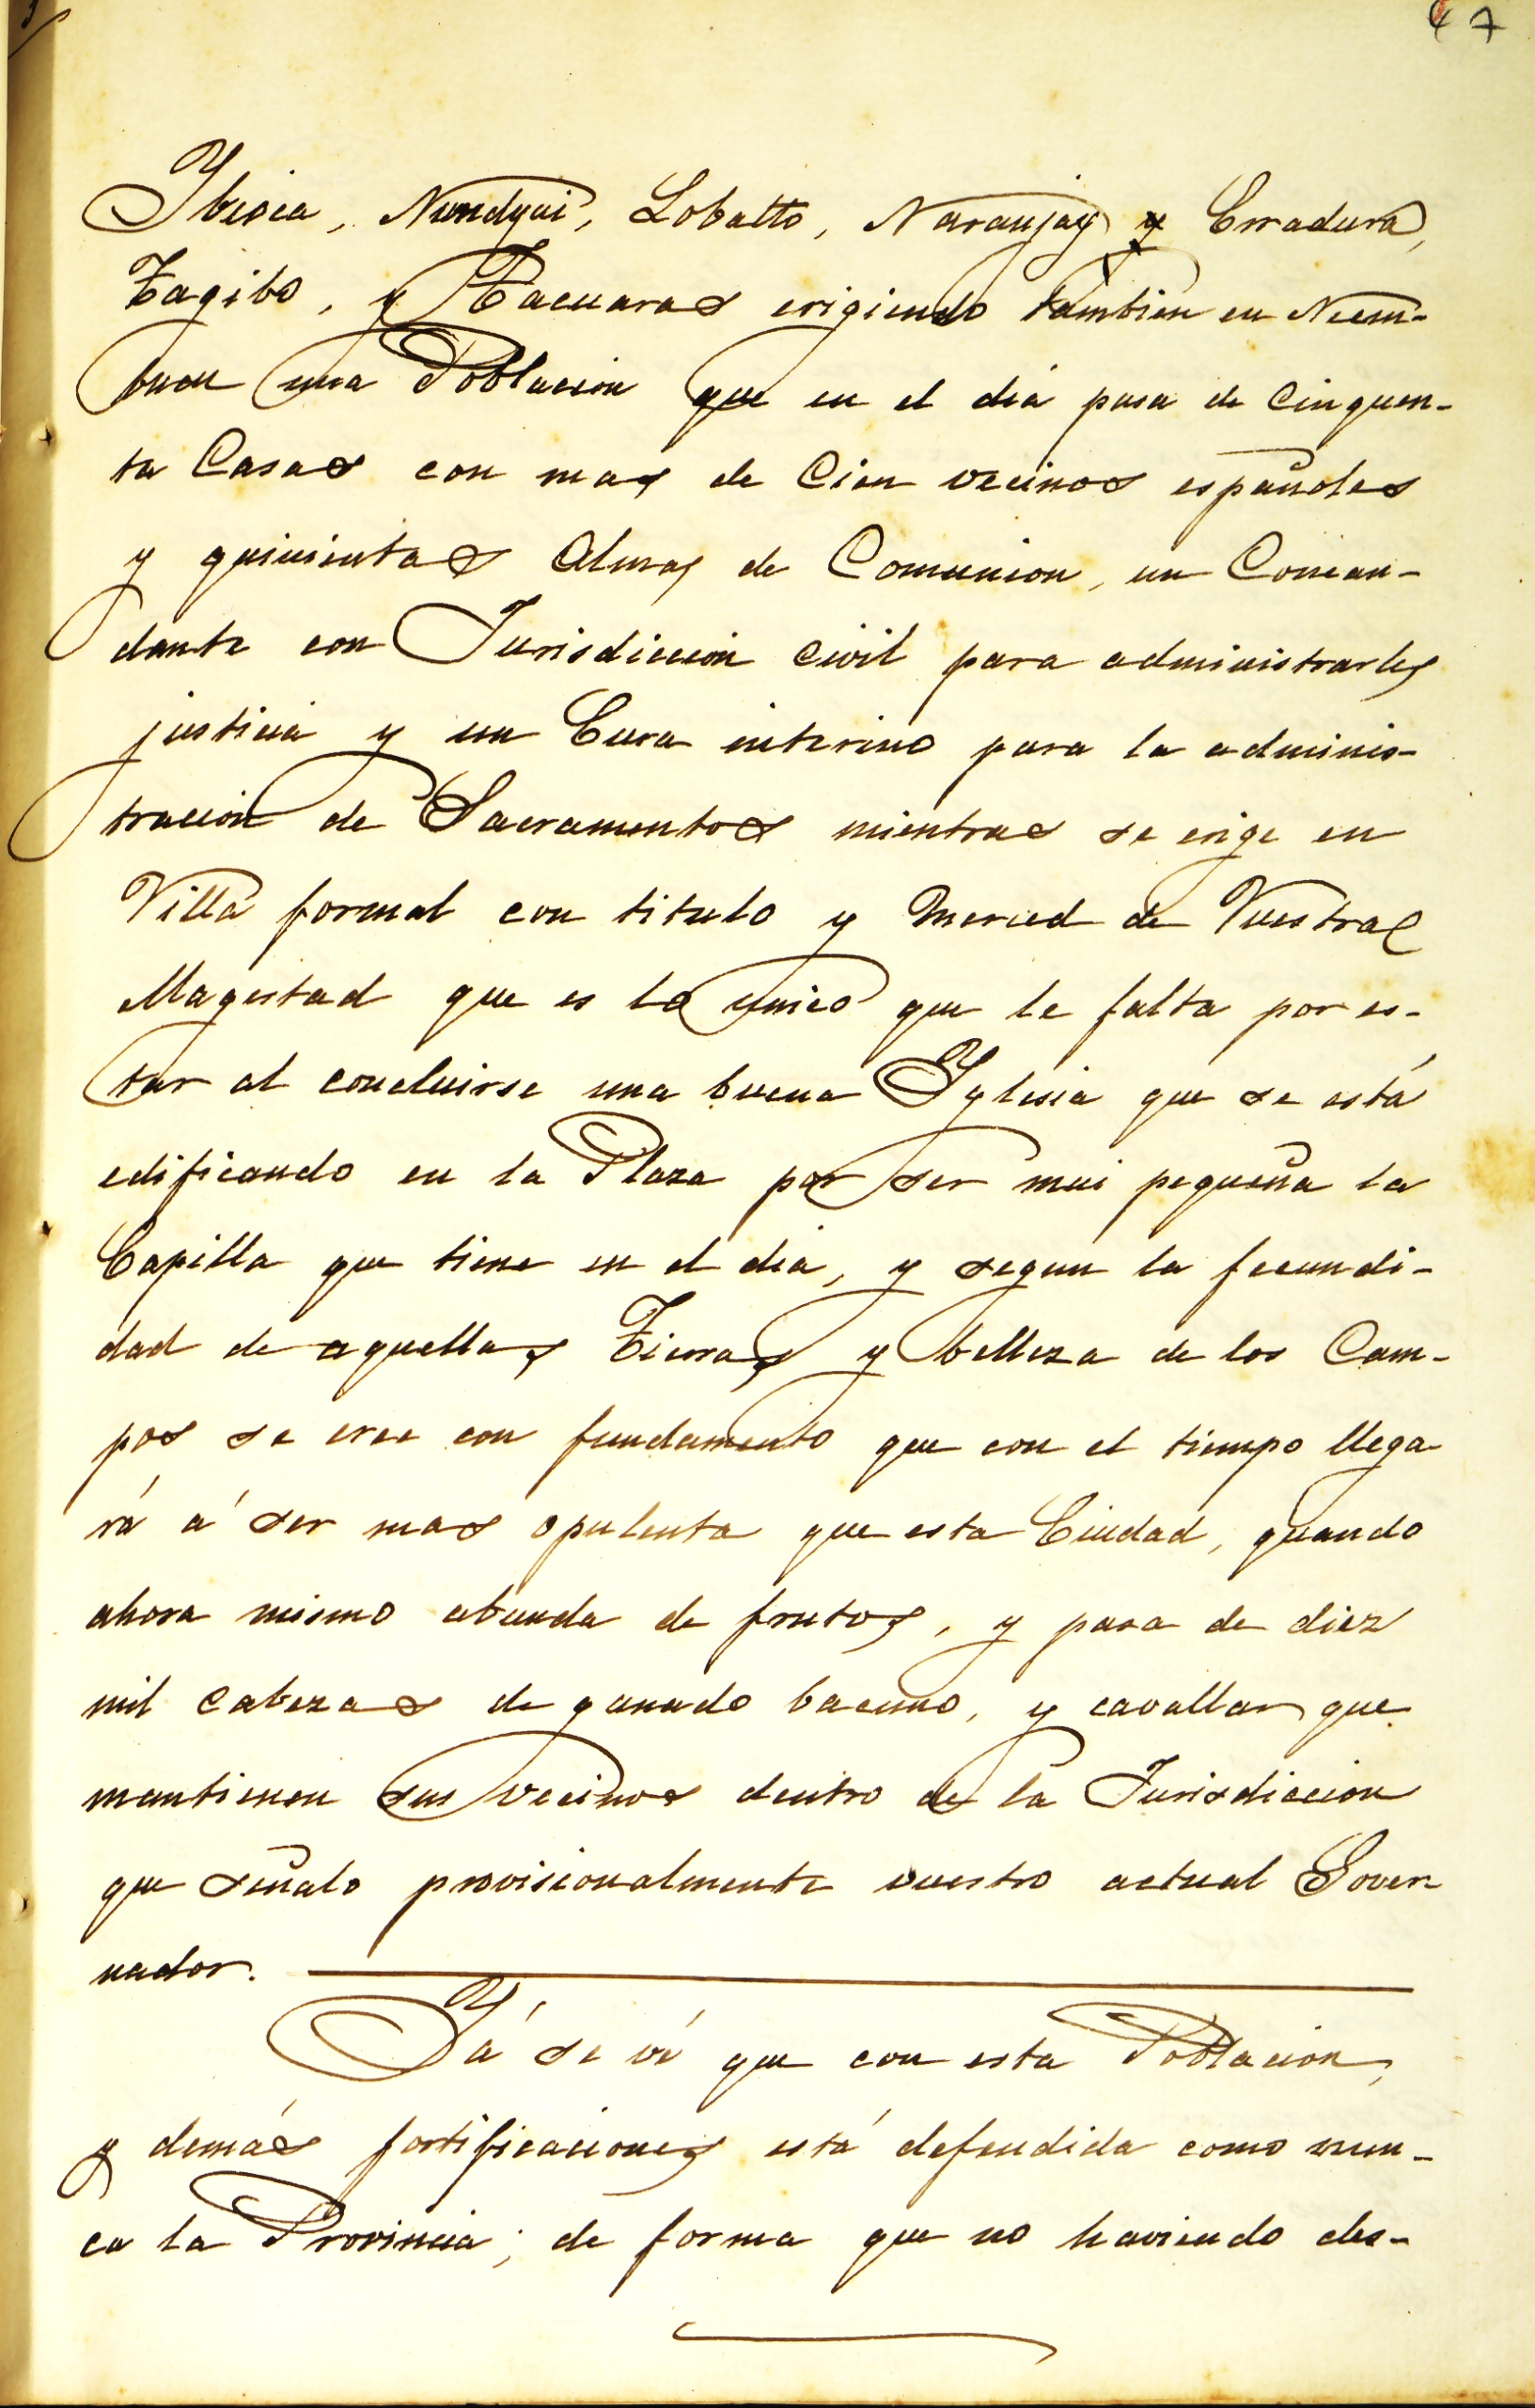 47
Ybioca, Nundyai, Lobatto, Naranjay y Erradura,
Tagibo, y Tacuaras erigiendo tambien en Neem-
bucu una Poblacion que en el dia pasa de cinquen-
ta Casas con mas de Cien vecinos españoles
y quinientas Almas de Comunion, un Coman-
dante con Jurisdiccion civil para administrarles
justicia y un Cura interino para la adminis-
tracion de Sacramentos mientras se erige en
Villa formal con titulo y merced de Vuestra
Magestad que es lo unico que le falta por es-
tar al concluirse una buena Yglesia que se está
edificando en la Plaza por ser mui pequeña la
Capilla que tiene en el dia, y segun la fecundi-
dad de aquellas Tierras y belleza de los Cam-
pos se cree con fundamento que con el tiempo llega
rá á ser mas opulenta que esta Ciudad, quando
ahora mismo abunda de frutos, y pasa de diez
mil cabezas de ganado bacuno, y cavallar que
mantienen sus vecinos dentro de la Jurisdiccion
que señalo provisionalmente vuestro actual Gover
nador.
Yá se vé que con esta Poblacion,
y demás fortificaciones está defendida como nun-
ca la Provincia; de forma que no haviendo des-